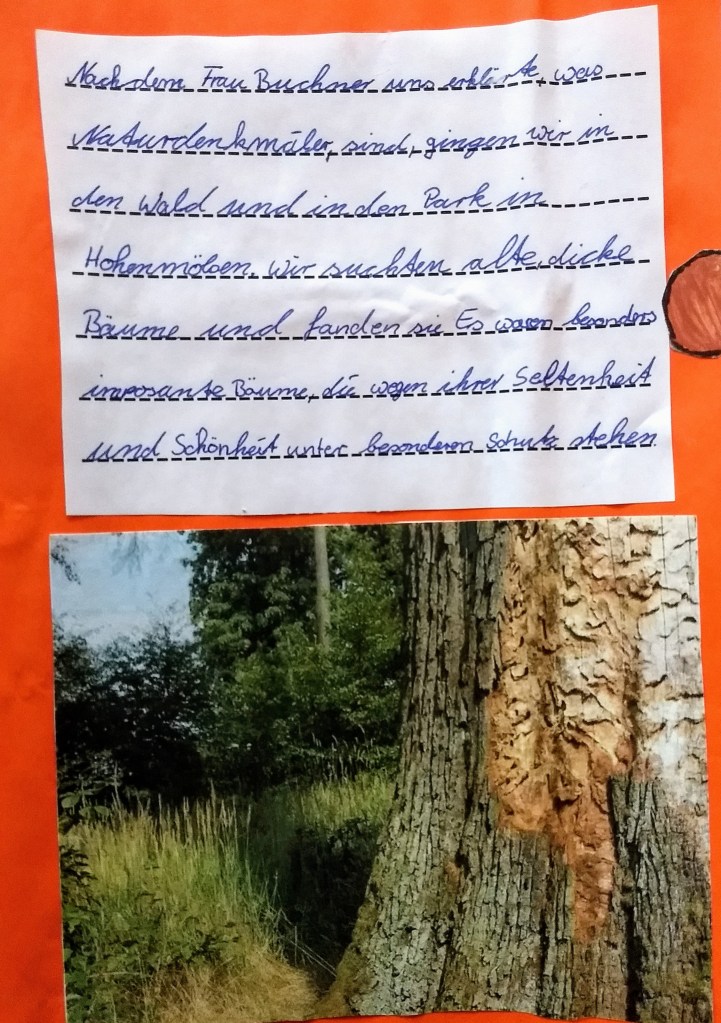 Nach dem Frau Buchner uns erklärte, was
Naturdenkmäler, sind, gingen wir in
den Wald und in den Park in
Hohenmölsen. Wir suchten alte, dicke
Bäume und fanden sie Es waren besonders
imposante Bäume, die wegen ihrer Seltenheit
und Schönheit unter besonderen Schutz stehen.